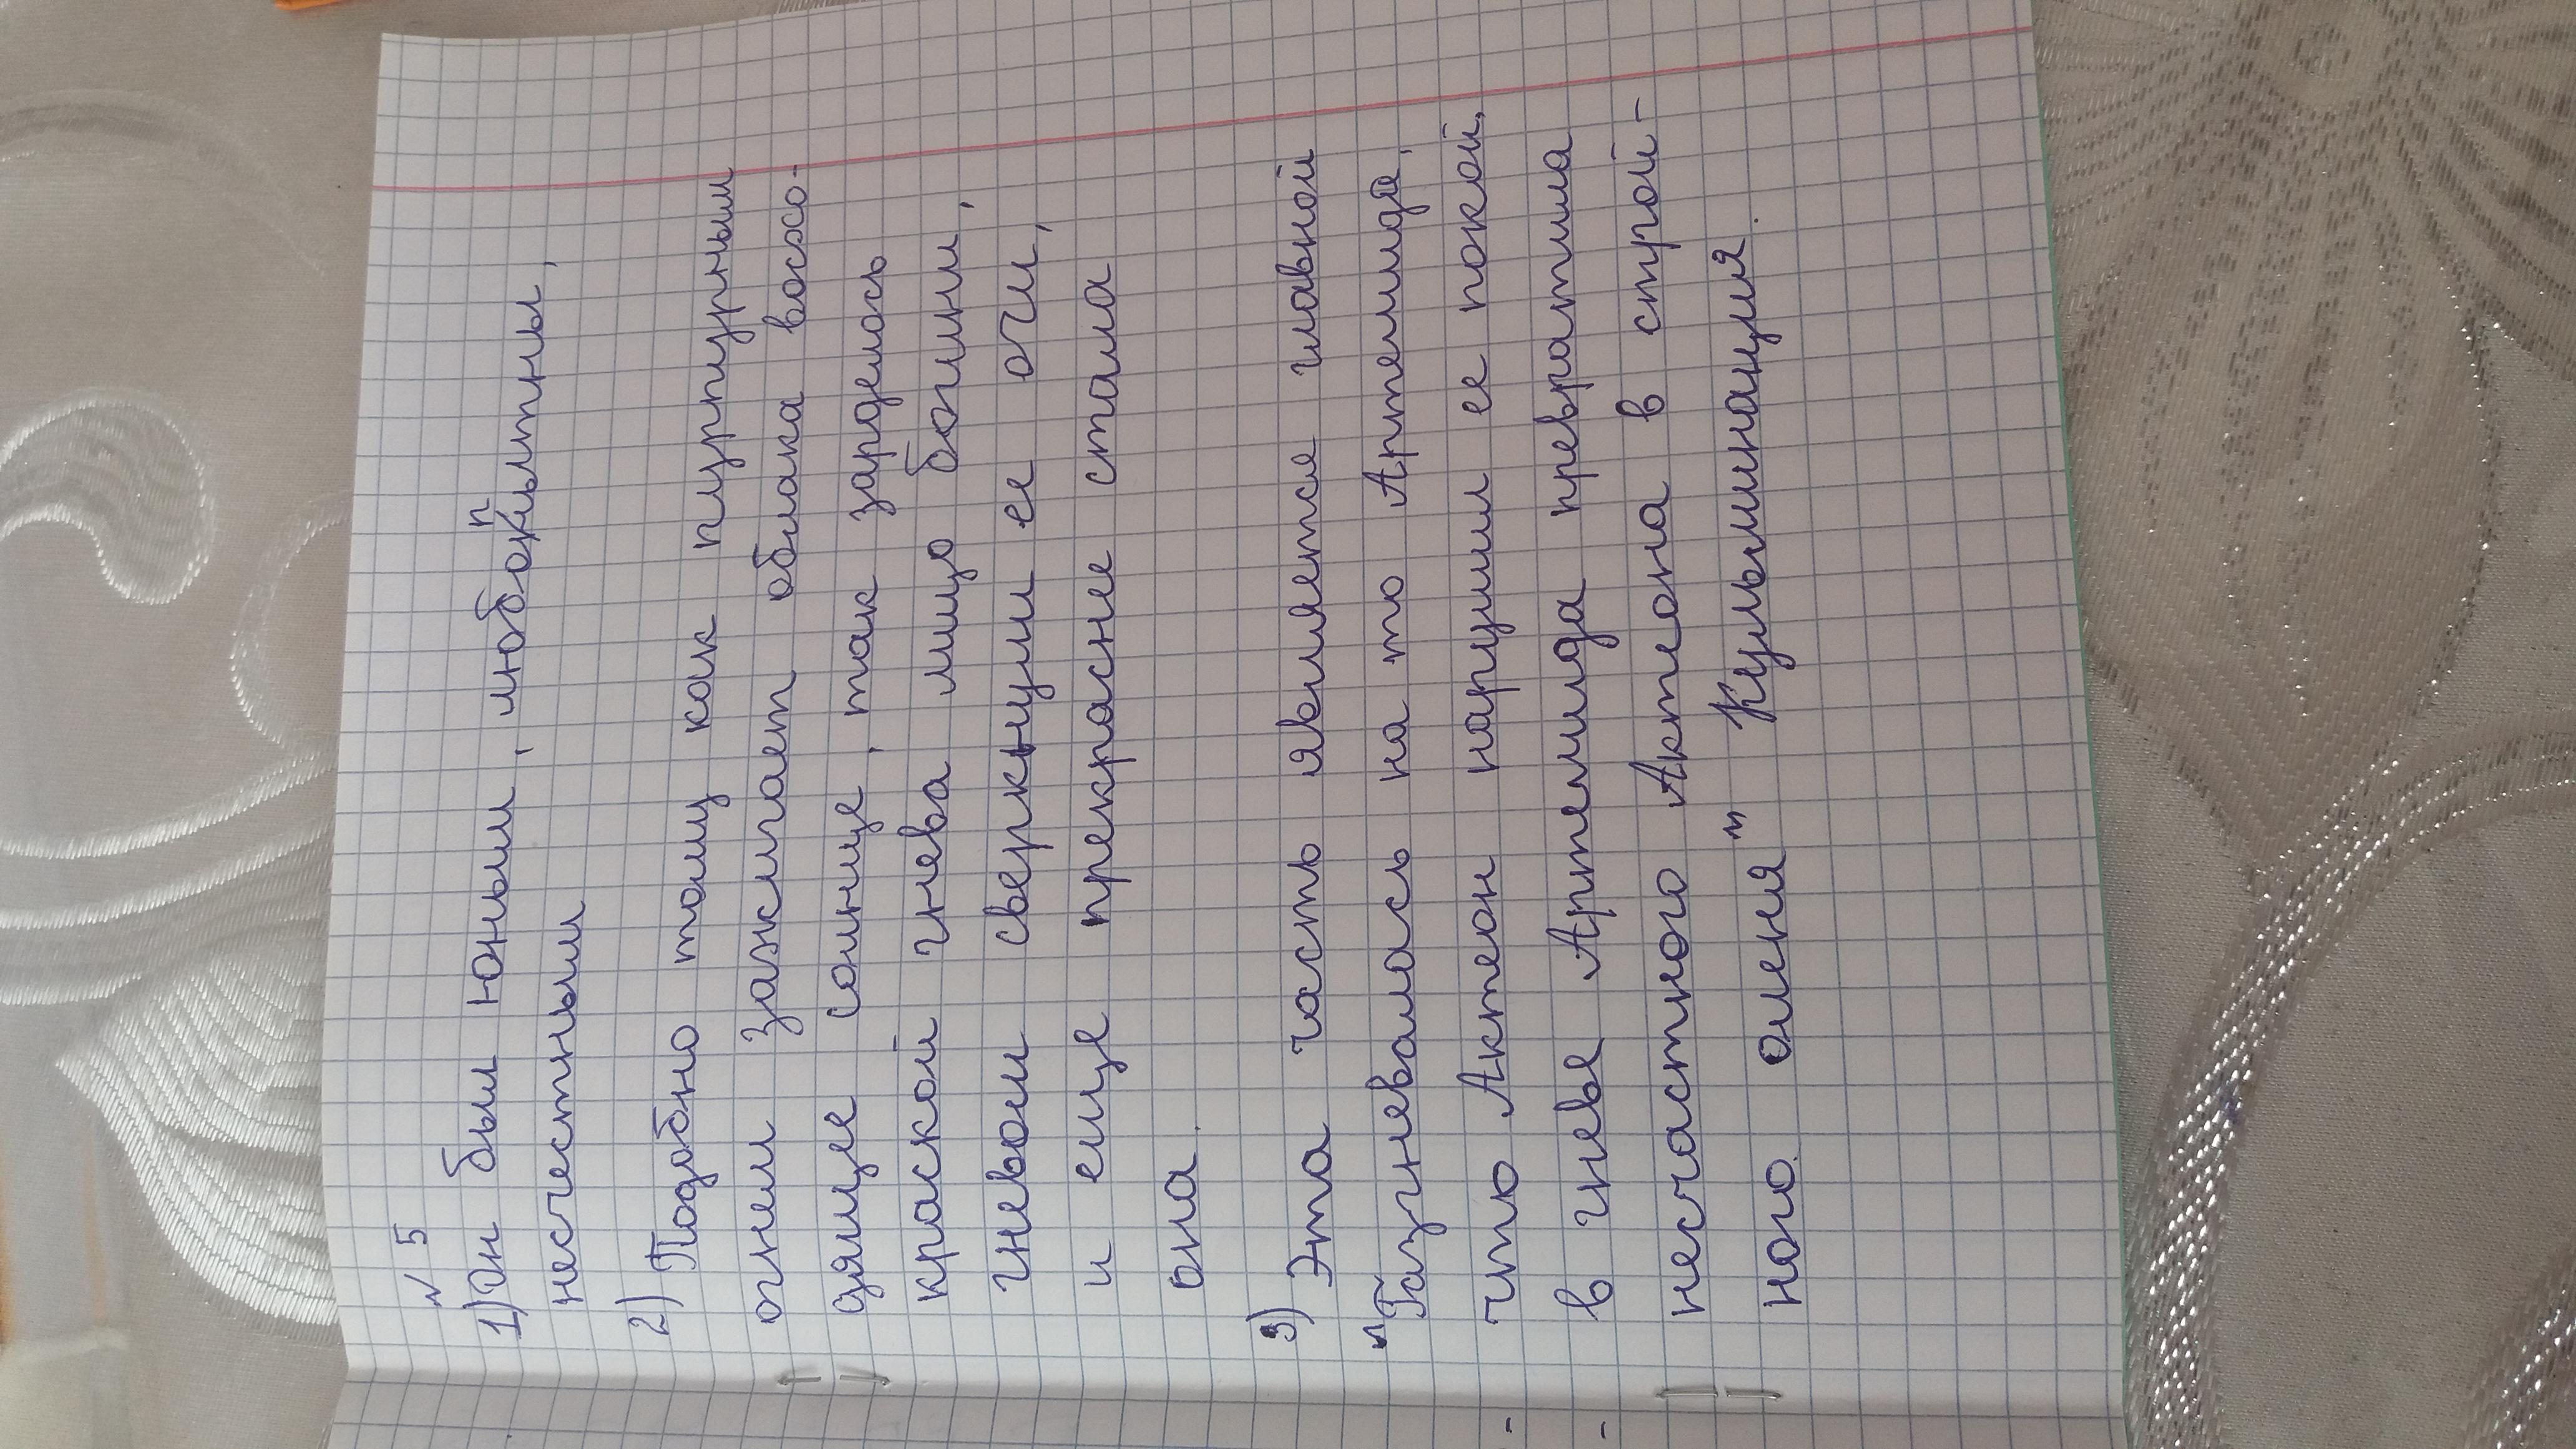 № 5
1) Он был юным, любопытны,
несчестным
2) Подобно тому как пурпурным
огнем зажигает облака восхо-
дящее солнце, так зарделось
краской гнева лицо богини,
гневом сверкнули ее очи,
и еще прекраснее стала
она.
3) Эта часть является главной
"Разгневалась на то Артемида,
что Актеон нарушил ее покой,
в гневе Артемида превратила
несчастного Актеона в строй-
ного оленя" Кульминация.